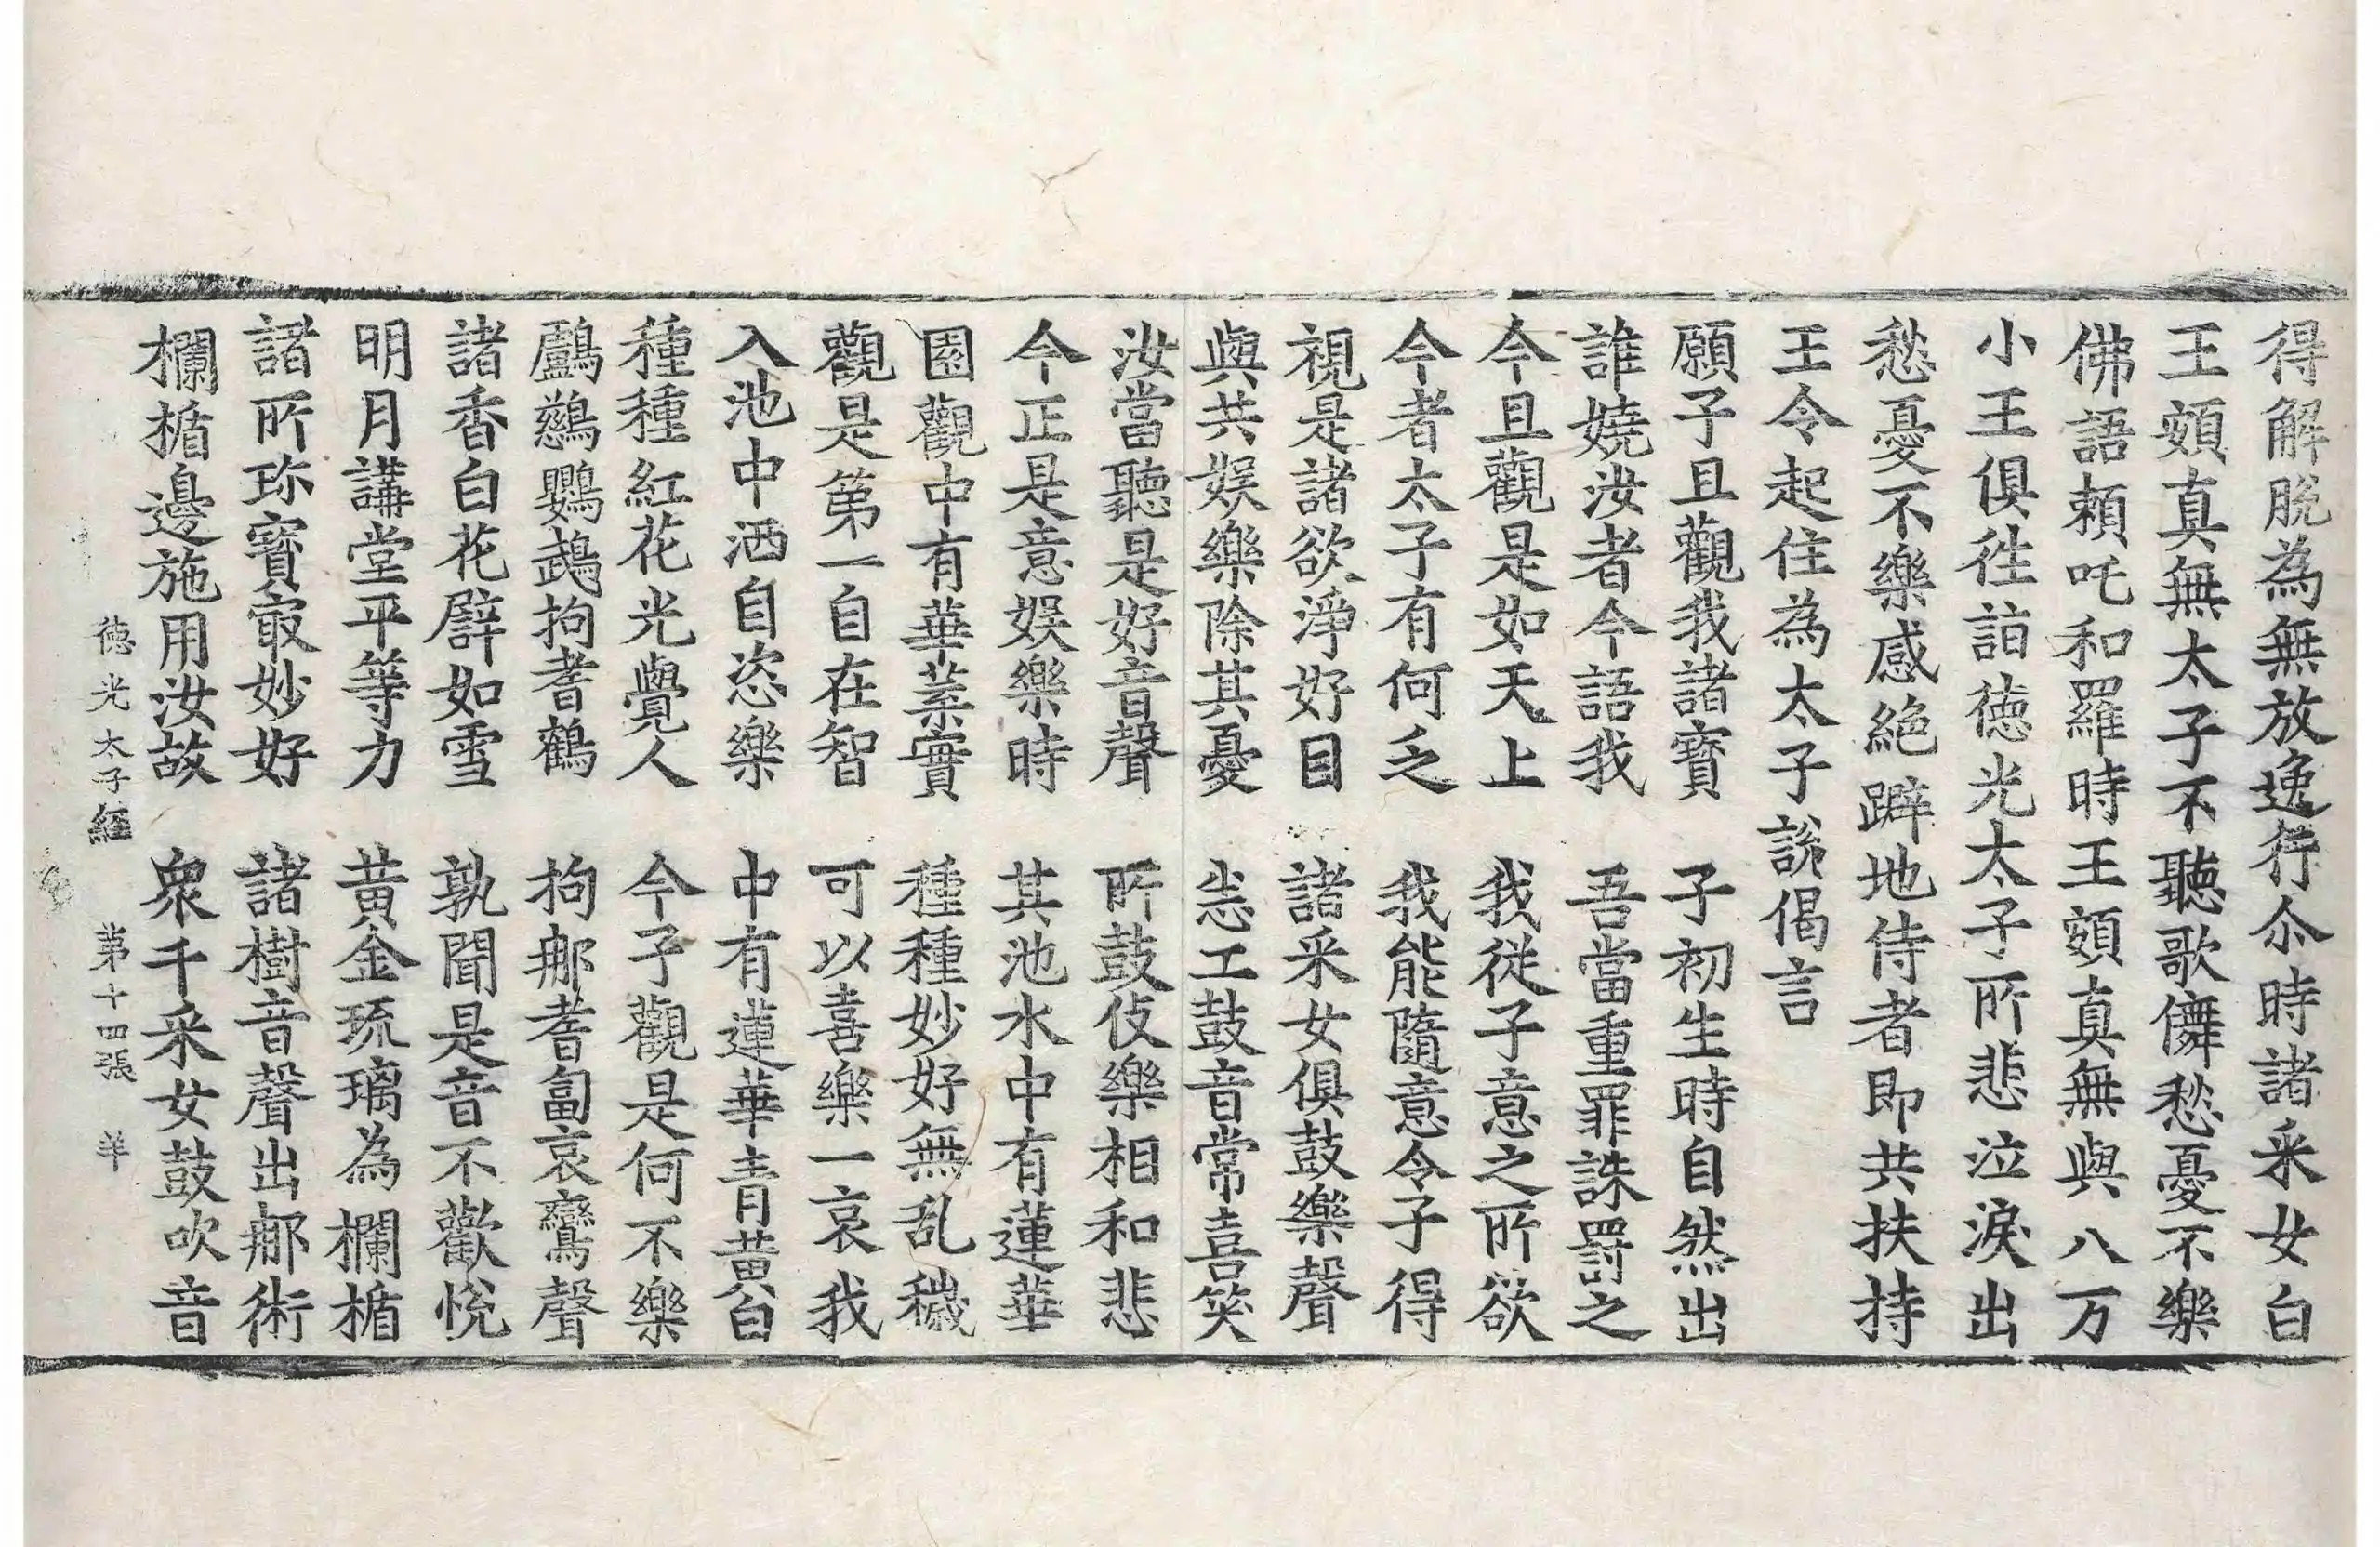 得解脫為無放逸行尒時諸采女白
王頞真無太子不聽歌儛愁憂不樂
佛語賴吒和羅時王頞真無與八万
小王俱徃詣德光太子所悲泣淚出
愁憂不樂感絕躃地侍者即共扶持
王令起住為太子說偈言
願子且觀我諸寶　子初生時自然出
誰嬈汝者今語我　吾當重罪誅罰之
今且觀是如天上　我從子意之所欲
今者太子有何乏　我能隨意令子得
視是諸欲淨好目　諸采女俱鼓樂聲
與共娛樂除其憂　恙工鼓音常喜笑
汝當聽是好音聲　所鼓伎樂相和悲
今正是意娛樂時　其池水中有蓮華
園觀中有華菓實　種種妙好無乱穢
觀是第一自在智　可以喜樂一哀我
入池中洒自恣樂　中有蓮華青黃白
種種紅花光㬂人　今子觀是何不樂
鸕鶿鸚鵡拘耆鶴　拘郍耆匐哀鸞聲
諸香白花譬如雪　孰聞是音不歡悅
明月講堂平等力　黃金琉璃為欄楯
諸所珎寶㝡妙好　諸樹音聲出郍術
欄楯邊施用汝故　衆千采女鼓吹音
德光太子經　第十四張　羊